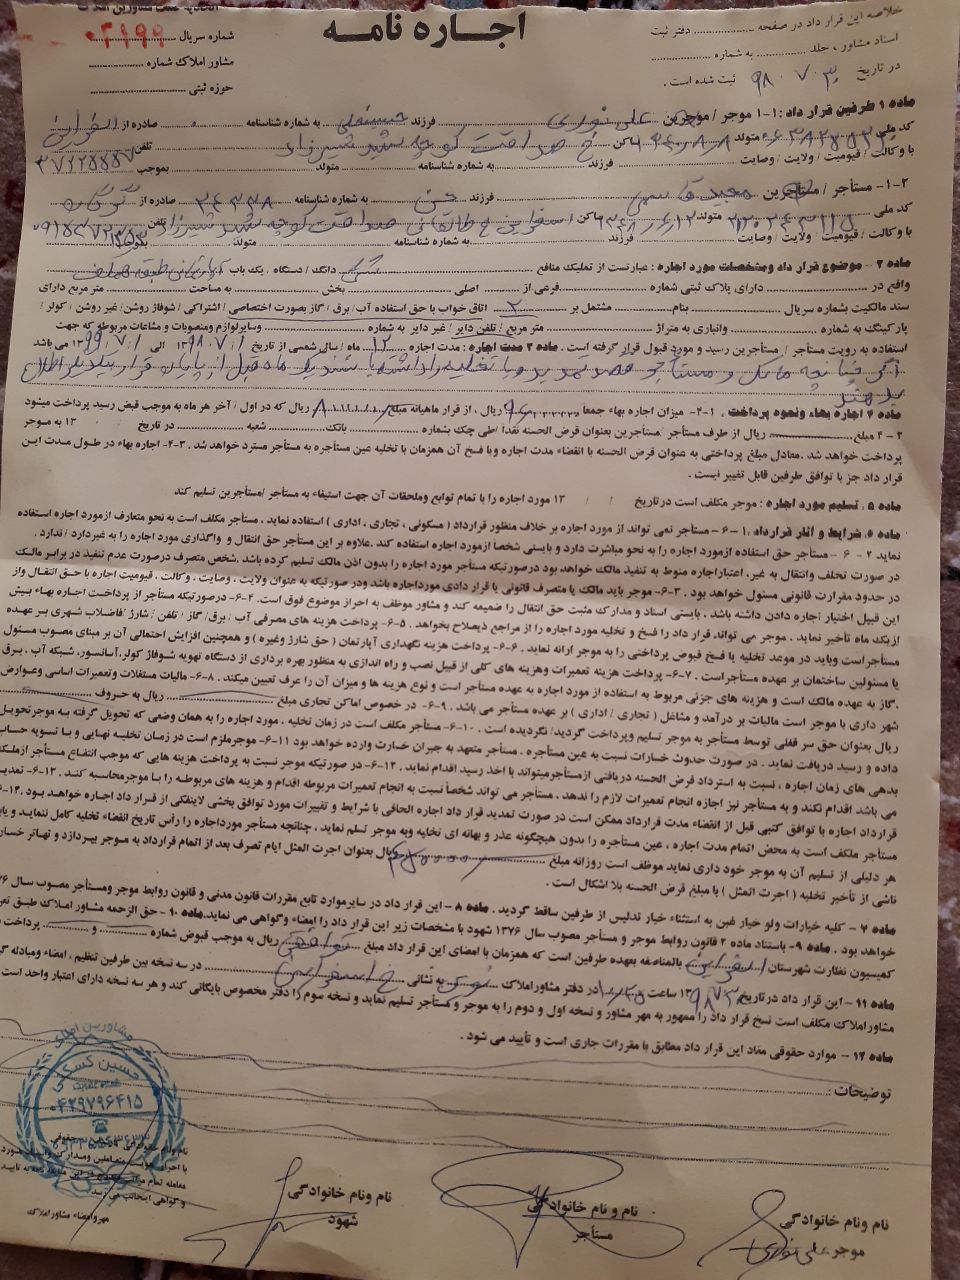 اتحادیه صنف مشاورین املاک
اجـاره نامـه
خلاصه این قرار داد در صفحه .......... دفتر ثبت
شماره سریال ۰۴۱۹۹
اسناد مشاور ، جلد .......... به شماره ..........
مشاور املاک شماره ..........
در تاریخ ۹۸٫۷٫۳۰ ثبت شده است .
حوزه ثبتی ..........
ماده ۱ طرفین قرار داد : ۱-۱ موجر / موجرین علی نوری فرزند حسینعلی به شماره شناسنامه ۰ صادره از اسفراین
کد ملی متولد ساکن خ صداقت کوچه شهید شیرزاد تلفن ۳۷۲۲۵۵۵۷
با وکالت / قیمومیت / ولایت / وصایت .......... فرزند .......... به شماره شناسنامه .......... متولد .......... بموجب
۲-۱- مستأجر / مستأجرین مجید قاسمی فرزند حسن به شماره شناسنامه ۲۴۳۳۸ صادره از
کد ملی متولد ساکن اسفراین خ طالقانی صداقت کوچه شهید شیرزاد تلفن
با وکالت / قیمومیت / ولایت / وصایت .......... فرزند .......... به شماره شناسنامه .......... متولد .......... بموجب
ماده ۲ - موضوع قرار داد ومشخصات مورد اجاره : عبارتست از تملیک منافع دانگ / دستگاه / یک باب آپارتمان طبقه همکف
واقع در .......... دارای پلاک ثبتی شماره .......... فرعی از .......... اصلی .......... بخش .......... به مساحت .......... متر مربع دارای
سند مالکیت بشماره سریال .......... بنام .......... مشتمل بر ۲ اتاق خواب با حق استفاده آب / برق / گاز بصورت اختصاصی / اشتراکی / شوفاژ روشن/ غیر روشن / کولر /
پارکینگ به شماره .......... وانباری به متراژ .......... متر مربع / تلفن دایر / غیر دایر به شماره .......... وسایر لوازم ومنصوبات و مشاعات مربوطه که جهت
استفاده به رویت مستأجر / مستأجرین رسید و مورد قبول قرار گرفته است . ماده ۳ مدت اجاره : مدت اجاره ۱۲ ماه / سال شمسی از تاریخ ۱۳۹۸٫۷٫۱ الی ۱۳۹۹٫۷٫۱ می باشد
چنانچه مالک و مستأجر قصد تمدید و یا تخلیه را داشته باشند یک ماه قبل از پایان قرار به یکدیگر اطلاع
بدهند
ماده ۴ اجاره بهاء ونحوه پرداخت . ۱-۴- میزان اجاره بهاء جمعاً ریال ، از قرار ماهیانه مبلغ ریال که در اول / آخر هر ماه به موجب قبض رسید پرداخت میشود
۲ - ۴ مبلغ .......... ریال از طرف مستأجر /مستأجرین بعنوان قرض الحسنه نقداً /طی چک بشماره .......... بانک .......... شعبه .......... در تاریخ / / ۱۳ به موجر
پرداخت خواهد شد .معادل مبلغ پرداختی به عنوان قرض الحسنه با انقضاء مدت اجاره ویا فسخ آن همزمان با تخلیه عین مستأجره به مستأجر مسترد خواهد شد . ۳-۴- اجاره بهاء در طول مدت این
قرار داد جز با توافق طرفین قابل تغییر نیست .
ماده ۵ ، تسلیم مورد اجاره : موجر مکلف است در تاریخ / / ۱۳ مورد اجاره را با تمام توابع وملحقات آن جهت استیفاء به مستأجر /مستأجرین تسلیم کند
ماده ۶. شرایط و آثار قرارداد ، ۱ - ۶- مستأجر نمی تواند از مورد اجاره بر خلاف منظور قرارداد ( مسکونی ، تجاری ، اداری ) استفاده نماید ، مستأجر مکلف است به نحو متعارف ازمورد اجاره استفاده
نماید ۲ - ۶ - مستأجر حق استفاده ازمورد اجاره را به نحو مباشرت دارد و بایستی شخصاً ازمورد اجاره استفاده کند .علاوه بر این مستأجر حق انتقال و واگذاری مورد اجاره را به غیردارد / ندارد .
در صورت تخلف وانتقال به غیر، اعتباراجاره منوط به تنفیذ مالک خواهد بود درصورتیکه مستأجر مورد اجاره را بدون اذن مالک تسلیم کرده باشد .شخص متصرف درصورت عدم تنفیذ در برابر مالک
در حدود مقررات قانونی مسئول خواهد بود . ۳-۶- موجر باید مالک یا متصرف قانونی یا قرار دادی مورداجاره باشد ودر صورتیکه به عنوان ولایت ، وصایت ، وکالت ، قیمومیت اجاره با حق انتقال واز
این قبیل اختیار اجاره دادن داشته باشد . بایستی اسناد و مدارک مثبت حق انتقال را ضمیمه کند و مشاور موظف به احراز موضوع فوق است. ۴-۶- درصورتیکه مستأجر از پرداخت اجاره بهاء بیش
ازیک ماه تأخیر نماید . موجر می تواند، قرار داد را فسخ و تخلیه مورد اجاره را از مراجع ذیصلاح بخواهد . ۵-۶- پرداخت هزینه های مصرفی آب / برق / گاز / تلفن / شارژ /فاضلاب شهری بر عهده
مستأجر است وباید در موعد تخلیه یا فسخ قبوض پرداختی را به موجر ارائه نماید . ۶-۶- پرداخت هزینه نگهداری آپارتمان ( حق شارژ وغیره ) و همچنین افزایش احتمالی آن بر مبنای مصوب مسئول
یا مسئولین ساختمان بر عهده مستأجراست . ۷-۶- پرداخت هزینه تعمیرات وهزینه های کلی از قبیل نصب و راه اندازی به منظور بهره برداری از دستگاه تهویه شوفاژ کولر،آسانسور، شبکه آب ، برق
،گاز به عهده مالک است و هزینه های جزئی مربوط به استفاده از مورد اجاره به عهده مستأجر است و نوع هزینه ها و میزان آن را عرف تعیین میکند . ۸-۶- مالیات مستغلات وتعمیرات اساسی وعوارض
شهر داری با موجر است مالیات بر درآمد و مشاغل ( تجاری / اداری ) بر عهده مستأجر می باشد . ۹-۶- در خصوص اماکن تجاری مبلغ .......... ریال به حروف ..........
ریال بعنوان حق سر قفلی توسط مستأجر به موجر تسلیم وپرداخت گردید/ نگردیده است . ۱۰-۶- مستأجر مکلف است در زمان تخلیه ، مورد اجاره را به همان وضعی که تحویل گرفته به موجرتحویل
داده و رسید دریافت نماید . در صورت حدوث خسارات نسبت به عین مستأجره . مستأجر متعهد به جبران خسارت وارده خواهد بود ۱۱-۶- موجرملزم است در زمان تخلیه نهایی و با تسویه حساب
بدهی های زمان اجاره ، نسبت به استرداد قرض الحسنه دریافتی ازمستأجرمیتواند با اخذ رسید اقدام نماید . ۱۲-۶- در صورتیکه موجر نسبت به پرداخت هزینه هایی که موجب انتفاع مستأجر ازملک
می باشد اقدام نکند و به مستأجر نیز اجازه انجام تعمیرات لازم را ندهد . مستأجر می تواند شخصاً نسبت به انجام تعمیرات مربوطه اقدام و هزینه های مربوطه را با موجرمحاسبه کند . ۱۳-۶- تمدید
قرارداد اجاره با توافق کتبی قبل از انقضاء مدت قرارداد ممکن است در صورت تمدید قرار داد اجاره الحاقی با شرایط و تغییرات مورد توافق بخشی لاینفکی از قرار داد اجاره خواهد بود. ۱۴-۶
مستأجر مکلف است به محض اتمام مدت اجاره ، عین مستأجره را بدون هیچگونه عذر و بهانه ای تخلیه وبه موجر تسلم نماید . چنانچه مستأجر مورداجاره را رأس تاریخ انقضاء تخلیه کامل ننماید و یابه
هر دلیلی از تسلیم آن به موجر خود داری نماید موظف است روزانه مبلغ ریال بعنوان اجرت المثل ایام تصرف بعد از اتمام قرارداد به موجر بپردازد و تهاتر خسارات
ناشی از تأخیر تخلیه ( اجرت المثل ) با مبلغ قرض الحسنه بلا اشکال است .
ماده ۷ - کلیه خیارات ولو خیار غبن به استثناء خیار تدلیس از طرفین ساقط گردید . ماده ۸ - این قرار داد در سایرموارد تابع مقررات قانون مدنی و قانون روابط موجر ومستأجر مصوب سال ۷۶
خواهد بود . ماده ۹- باستناد ماده ۲ قانون روابط موجر و مستأجر مصوب سال ۱۳۷۶ شهود با مشخصات زیر این قرار داد را امضاء وگواهی می نماید.ماده ۱۰- حق الزحمه مشاور املاک طبق تعرفه
کمیسیون نظارت شهرستان اسفراین بالمناصفه بعهده طرفین است که همزمان با امضای این قرار داد مبلغ توافقی ریال به موجب قبوض شماره .......... و .......... پرداخت
ماده ۱۱ - این قرار داد در تاریخ ۹۸٫۷٫۳۰ ساعت در دفتر مشاوراملاک به نشانی اسفراین در سه نسخه بین طرفین تنظیم ، امضاء ومبادله گردید
مشاوراملاک مکلف است نسخ قرار داد را ممهور به مهر مشاور و نسخه اول و دوم را به موجر و مستأجر تسلیم نماید و نسخه سوم را دفتر مخصوص بایگانی کند و هر سه نسخه دارای اعتبار واحد است
ماده ۱۲ - موارد حقوقی مفاد این قرار داد مطابق با مقررات جاری است و تأیید می شود .
توضیحات :
مشاورین املاک
شماره عضویت
۰۴۲۹۷۹۶۴۱۵
مهر وامضاء مشاور املاک
نام ونام خانوادگی
شهود
نام و نام خانوادگی
مستأجر
نام ونام خانوادگی
موجر علی نوری